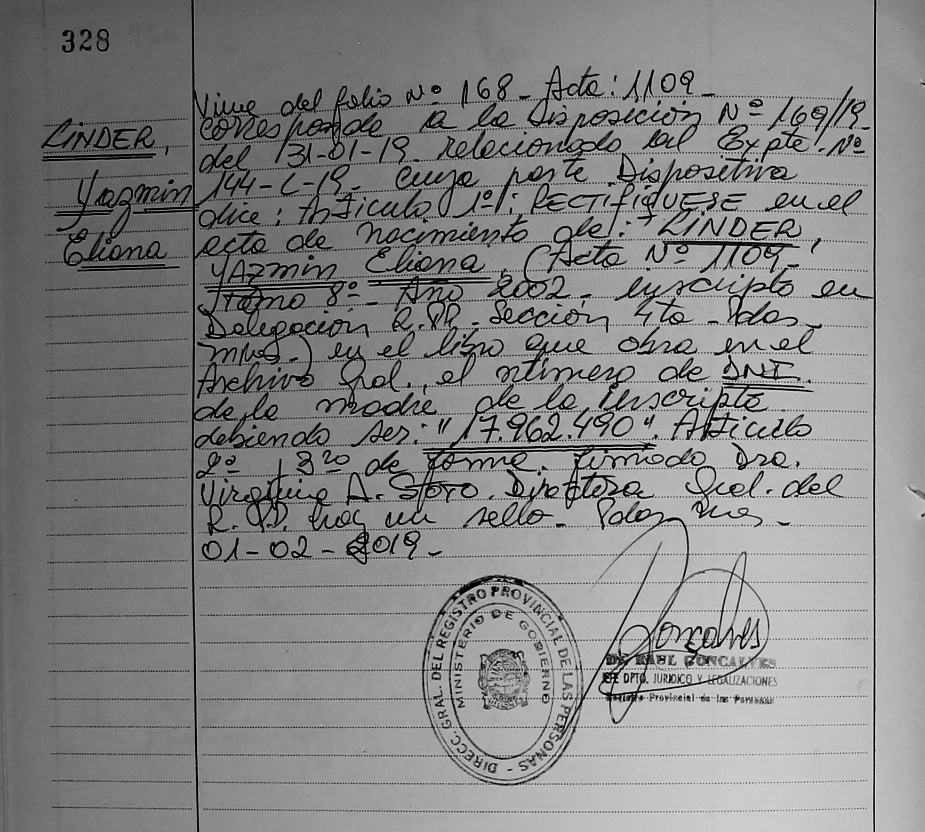 328
LINDER,
Yazmin
Eliana
Viene del folio Nº 168 - Acta: 1109 -
corresponde a la Disposición Nº 169/19
del 31-01-19 - relacionado al Expte. Nº
144-L-19 - cuya parte Dispositiva
dice: Artículo 1º: RECTIFIQUESE en el
acta de nacimiento de: LINDER,
YAZMIN Eliana (Acta Nº 1109 -
Tomo 8º - Año 2002 - inscripta en
Delegación R.PP. Sección 4ta - Pdas
Mnes -) en el libro que obra en el
Archivo Gral., el número de DNI
de la madre de la inscripta
debiendo ser: "17.962.490". Artículo
2º, 3ro de forma. Firmado Dra.
Virginia A. Directora Gral. del
R.PP. hay un sello - Pdas Mnes -
01-02-2019 -
DIRECC. GRAL. DEL REGISTRO PROVINCIAL DE LAS PERSONAS -
MINISTERIO DE GOBIERNO
Gonçalves
RAUL GONCALVES
JEFE DPTO. JURIDICO Y LEGALIZACIONES
Registro Provincial de las Personas